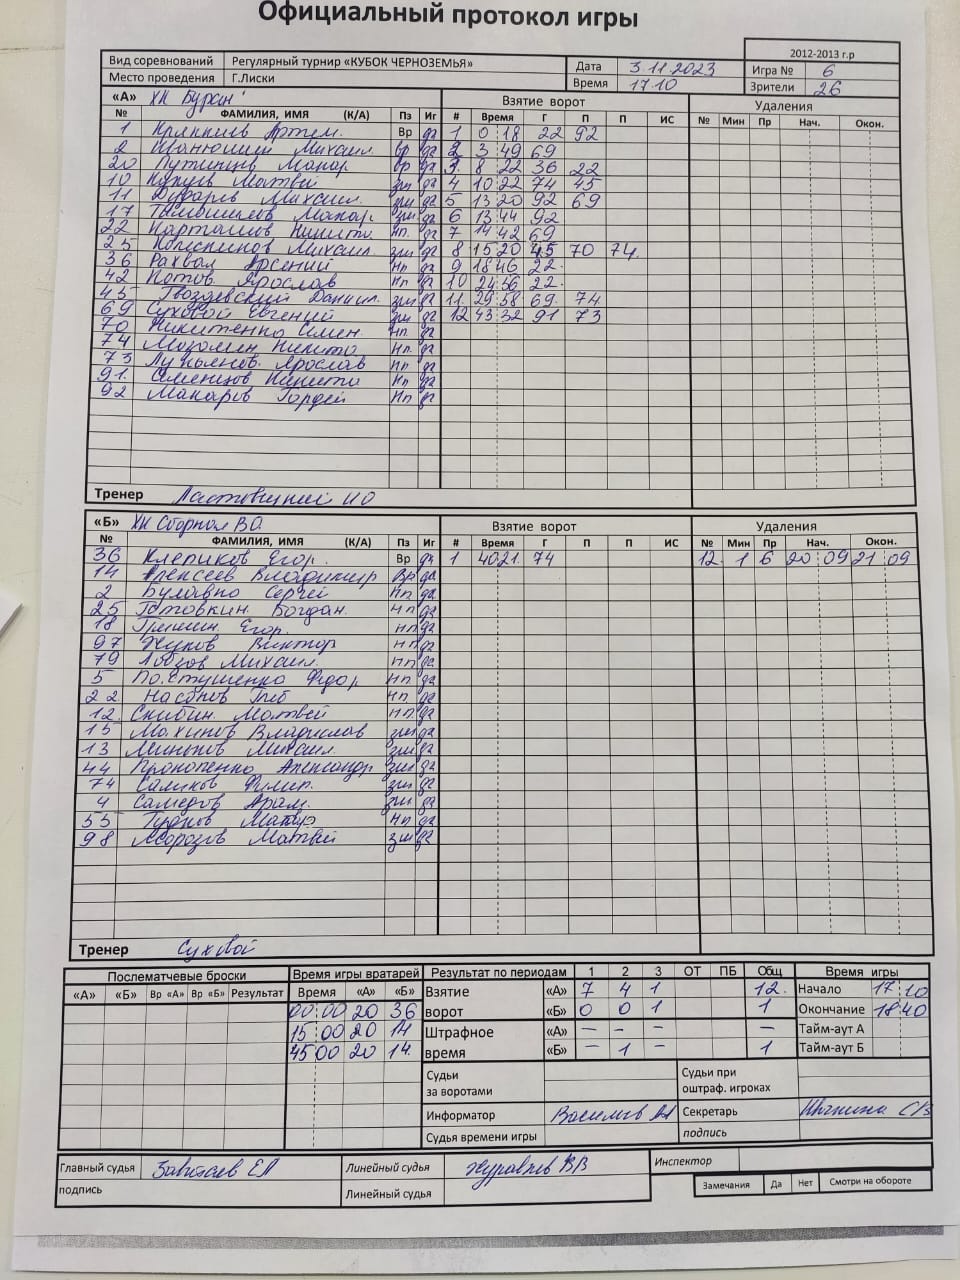 Официальный протокол игры
2012-2013 г.р
Вид соревнований Регулярный турнир «КУБОК ЧЕРНОЗЕМЬЯ» Дата 3.11.2023 Игра № 6
Место проведения Г.Лиски Время 17.10 Зрители 26
«А» ХК Буран Взятие ворот Удаления
№ ФАМИЛИЯ, ИМЯ (К/А) Пз Иг # Время Г П П ИС № Мин Пр Нач. Окон.
1 Артем. Вр да 1 0 18 22 92
2 Михаил. вр да 2 3 49 69
20 Путинцев Макар вр да 3. 8 22 36 22
10 Матвей зщ да 4 10 22 74 45
11 Михаил. зщ да 5 13 20 92 69
17 Макар. зщ да 6 13 44 92
22 Карташов Никита нп да 7 14 42 69
25 Михаил. зщ да 8 15 20 45 70 74.
36 Рахвал Арсений нп да 9 18 46 22.
42 Котов Ярослав нп да 10 24 56 22.
45 Гвоздевский Даниил. зщ да 11. 29 58 69 74
69 Суховой Евгений зщ да 12 43 32 91 73
70 Никитенко Семен нп да
74 Никита нп. да
73 Лукьянов. Ярослав нп да
91. Семенцов Никита нп да
92 Макаров Гордей нп да
Тренер
«Б» ХК Сборная В.О. Взятие ворот Удаления
№ ФАМИЛИЯ, ИМЯ (К/А) Пз Иг # Время Г П П ИС № Мин Пр Нач. Окон.
36 Клепиков Егор. Вр да 1 40 21. 74 12. 1 6 20 09 21 09
14 Алексеев Владимир Вр да
2 Булавко Сергей нп да
25 Готовкин Богдан. нп да
18 Гришин Егор. нп да
97 Жуков Виктор нп да
79 Лобзов Михаил. нп да
5 Федор нп да
22 Глеб нп да
12. Скибин Матвей нп да
15 Махинов Владислав зщ да
13 Михаил. зщ да
44 Прокопенко Александр зщ да
74 Саликов Филип. зщ да
4 Самедов Арам. зщ да
55 Гудков Макар нп да
98 Морозов Матвей зщ да
Тренер Суховой
Послематчевые броски Время игры вратарей Результат по периодам 1 2 3 ОТ ПБ Общ Время игры
«А» «Б» Вр «А» Вр «Б» Результат Время «А» «Б» Взятие «А» 7 4 1 12. Начало 17 10
00 00 20 36 ворот «Б» 0 0 1 1 Окончание 18 40
15 00 20 14 Штрафное «А» – – – – Тайм-аут А
45 00 20 14. время «Б» – 1 – 1 Тайм-аут Б
Судьи за воротами Судьи при оштраф. игроках
Информатор Секретарь
Судья времени игры подпись
Главный судья Линейный судья Журавлев ВВ Инспектор
подпись Линейный судья Замечания Да Нет Смотри на обороте